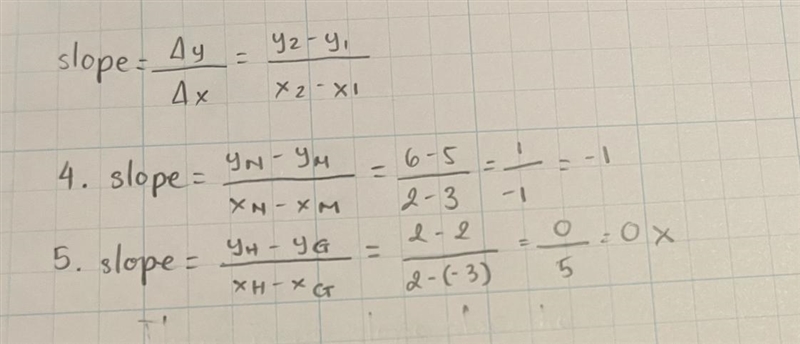 slope = Δy / Δx = y₂ - y₁ / x₂ - x₁
4. slope = yN - yM / xN - xM = 6 - 5 / 2 - 3 = 1 / -1 = -1
5. slope = yH - yG / xH - xG = 2 - 2 / 2 - (-3) = 0 / 5 = 0 x